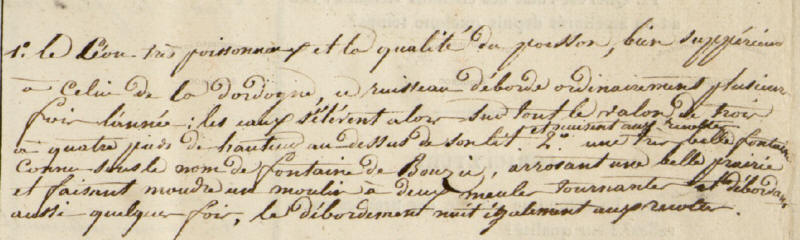 1.° le Céou très poissonneux et la qualité du poisson, bien suppérieur
à Celui de la dordogne, ce ruisseau déborde ordinairement plusieur
fois l'année ; les eaux s'élévent alors sur tout le valon de trois
à quatre pieds de hauteur au dessus de son lit et nuisent aux recoltes 2.° une très belle fontaine
Connu sous le nom de fontaine de Bouzic, arrosant une belle prairie
et faisant moudre un moulin à deux meules tournantes et débordant
aussi quelques fois, le débordement nuit également aux recoltes.